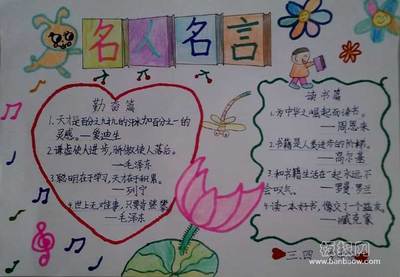 名人名言
勤奋篇
1.天才是百分之九十九的汗水加百分之一的
灵感。—爱迪生
2.谦虚使人进步,骄傲使人落后。
—毛泽东
3.聪明在于学习,天才在于积累。
—列宁
4.世上无难事,只要肯登攀
—毛泽东
读书篇
1.为中华之崛起而读书。
—周恩来
2.书籍是人类进步的阶梯。
—高尔基
3.和书籍生活在一起,永远不
会叹气。—罗曼·罗兰
4.读一本好书,像交了一个益友。
—臧克家
三.四
www.banbaow.com